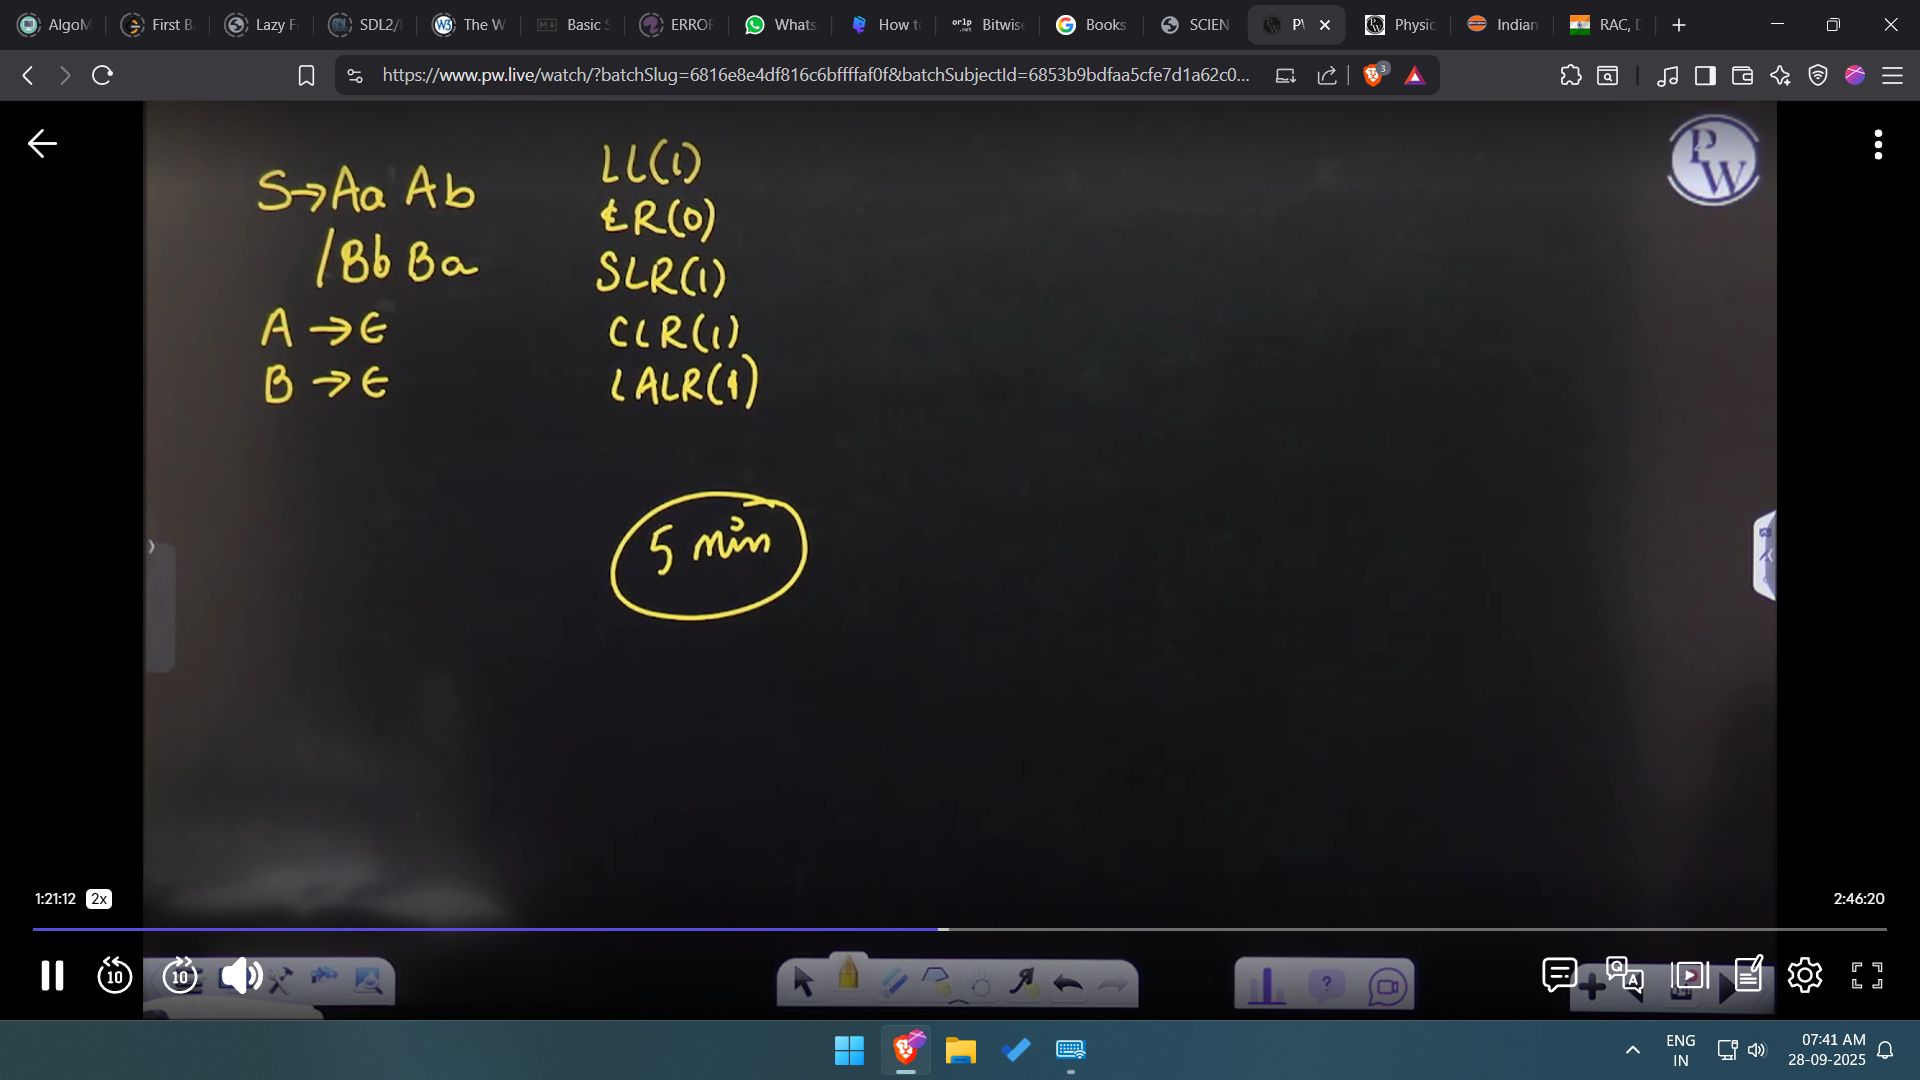 AlgoM
First B
Lazy F
SDL2/
The W
Basic S
ERROR
Whats
How to
Bitwise
Books
SCIEN
P
Physic
Indian
RAC, D
https://www.pw.live/watch/?batchSlug=6816e8e4df816c6bffffaf0f&batchSubjectId=6853b9bdfaa5cfe7d1a62c0...
3
PW
S→Aa Ab
/Bb Ba
A →ϵ
B →ϵ
LL(1)
LR(0)
SLR(1)
CLR(1)
LALR(1)
5 min
1:21:12 2x
2:46:20
10
10
ENG
IN
07:41 AM
28-09-2025